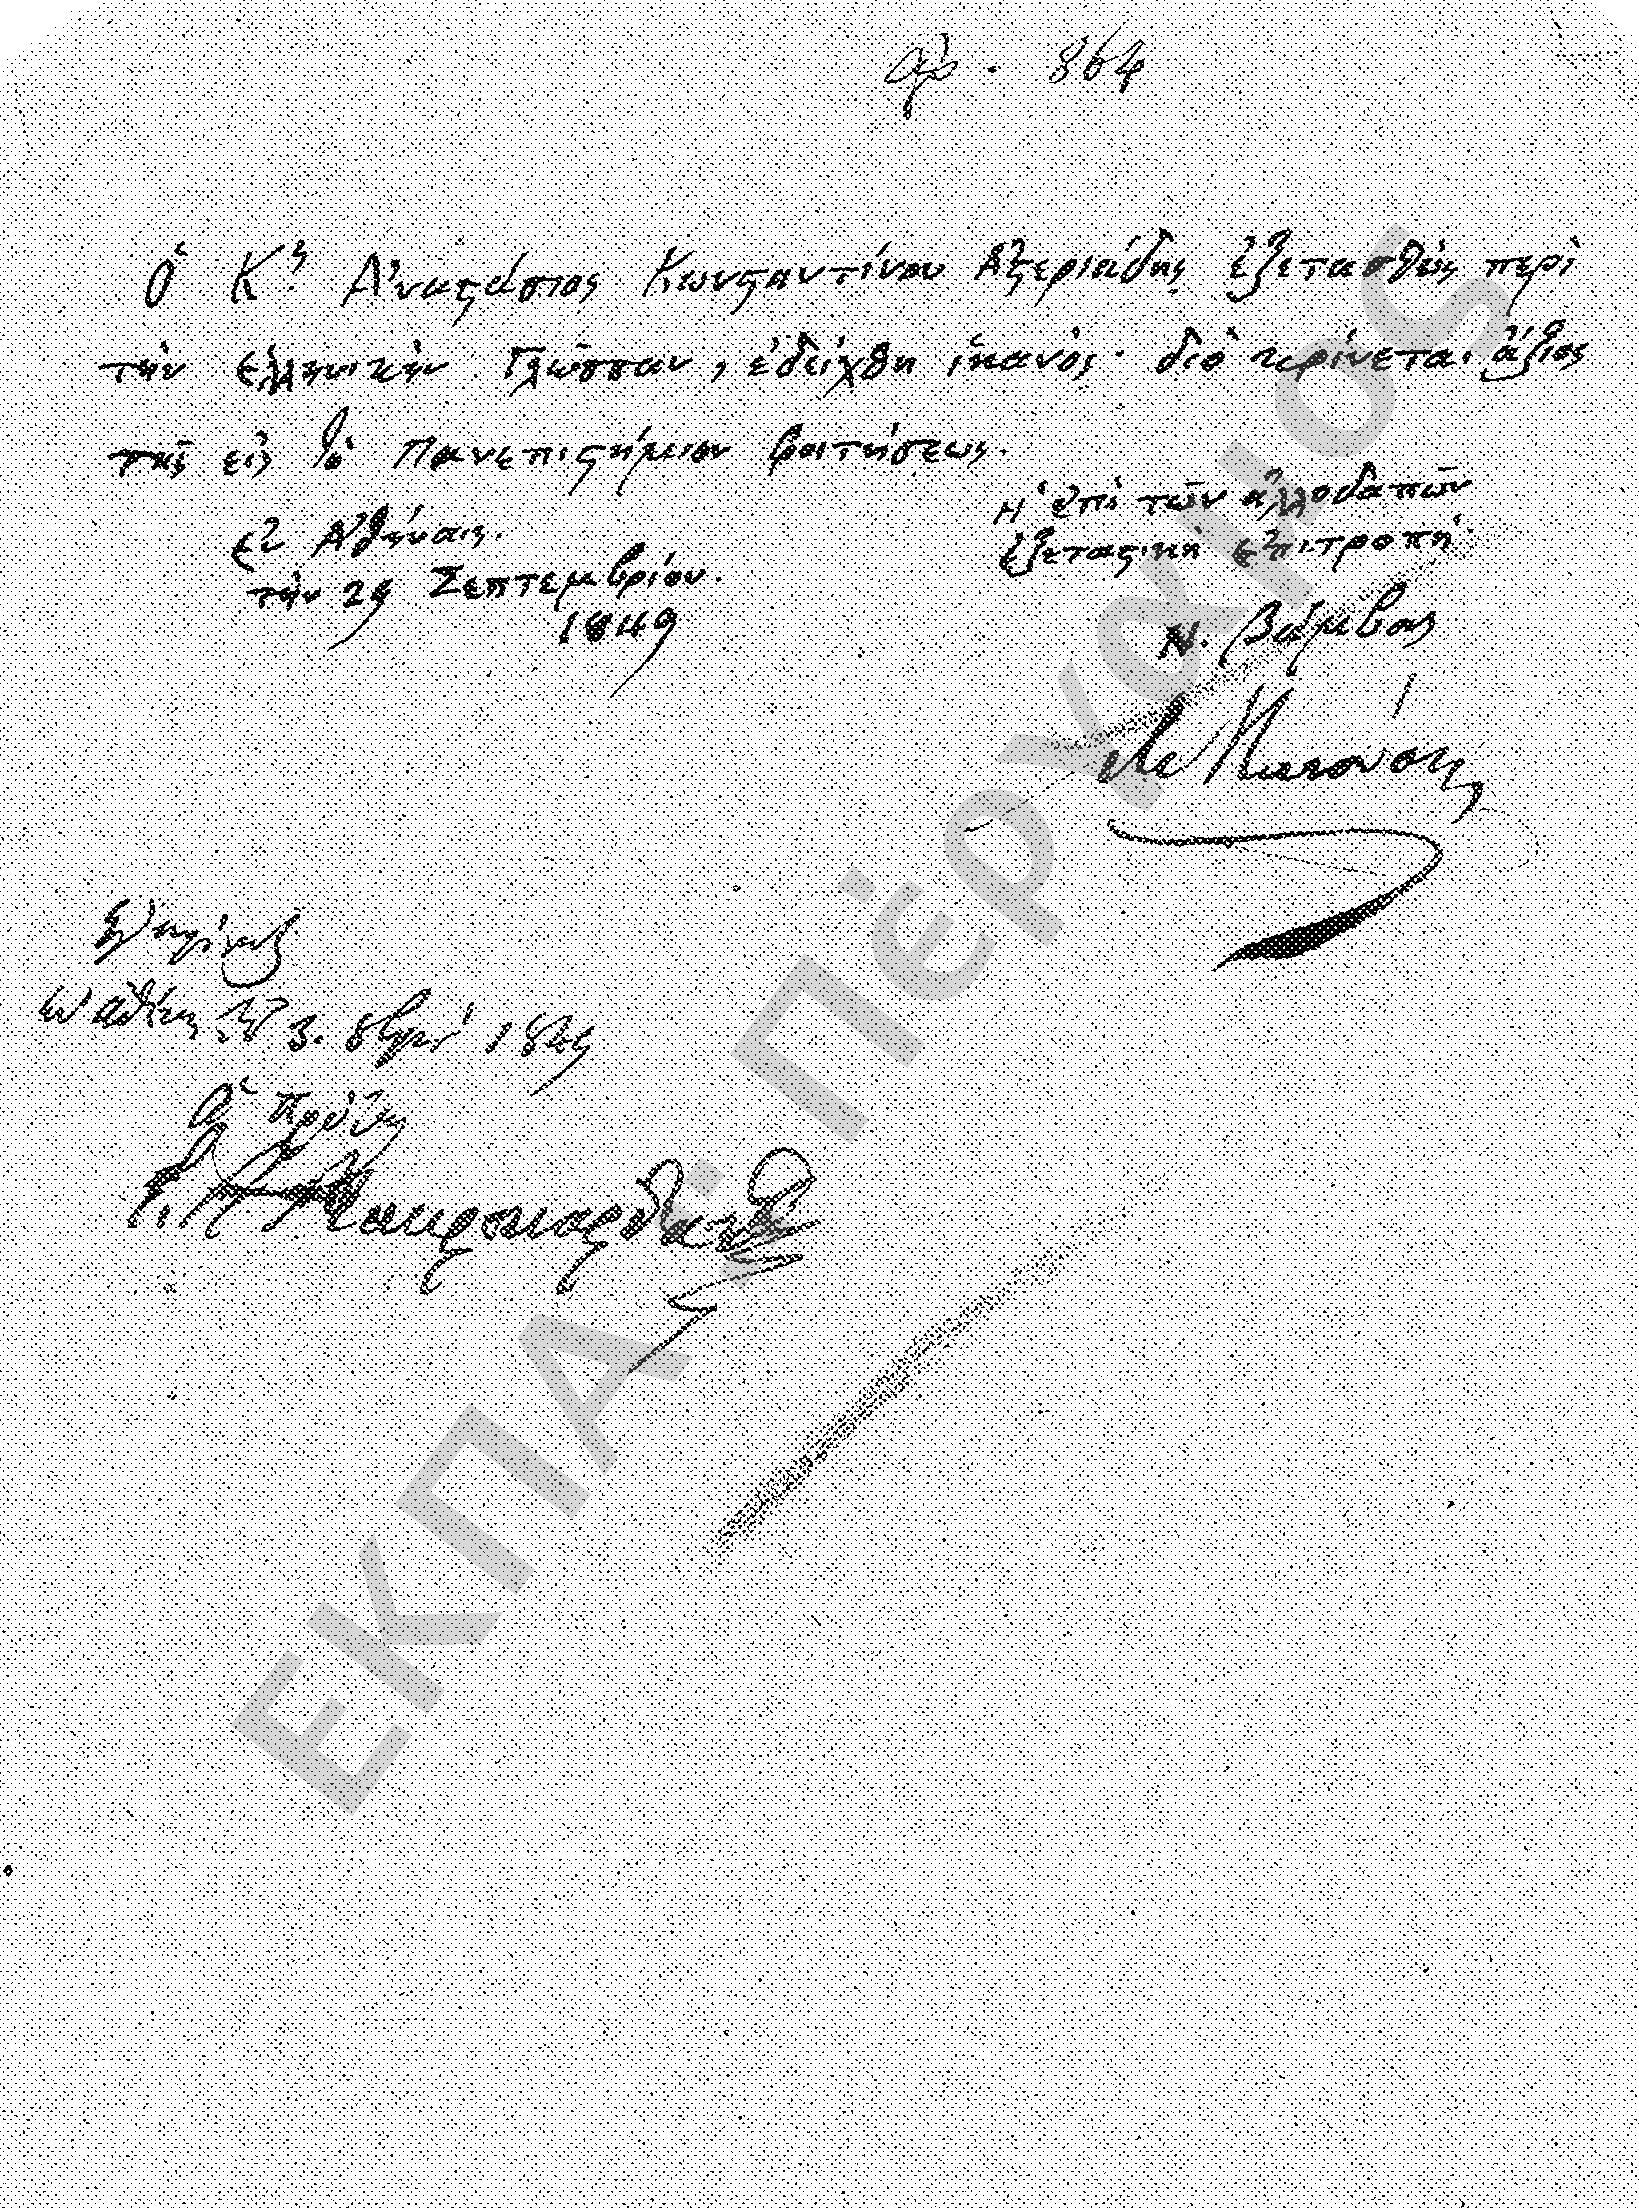 ἀρ. 864
Ὁ Κος Ἀναστάσιος Κωνσταντίνου Ἀστεριάδης ἐξετασθεὶς περὶ
τὴν ἑλληνικὴν Γλῶσσαν, ἐδείχθη ἱκανός· διὸ κρίνεται ἄξιος
τῆς εἰς τὸ Πανεπιστήμιον φοιτήσεως.
Ἐν Ἀθήναις.
τὴν 29 Σεπτεμβρίου.
1849
Ἡ ἐπὶ τῶν ἀλλοδαπῶν
ἐξεταστικὴ ἐπιτροπή
Ν. Βάμβας
3. 8βρίου 1849
Ὁ Πρύτανις
ΕΚΠΑ - Πέργαμος